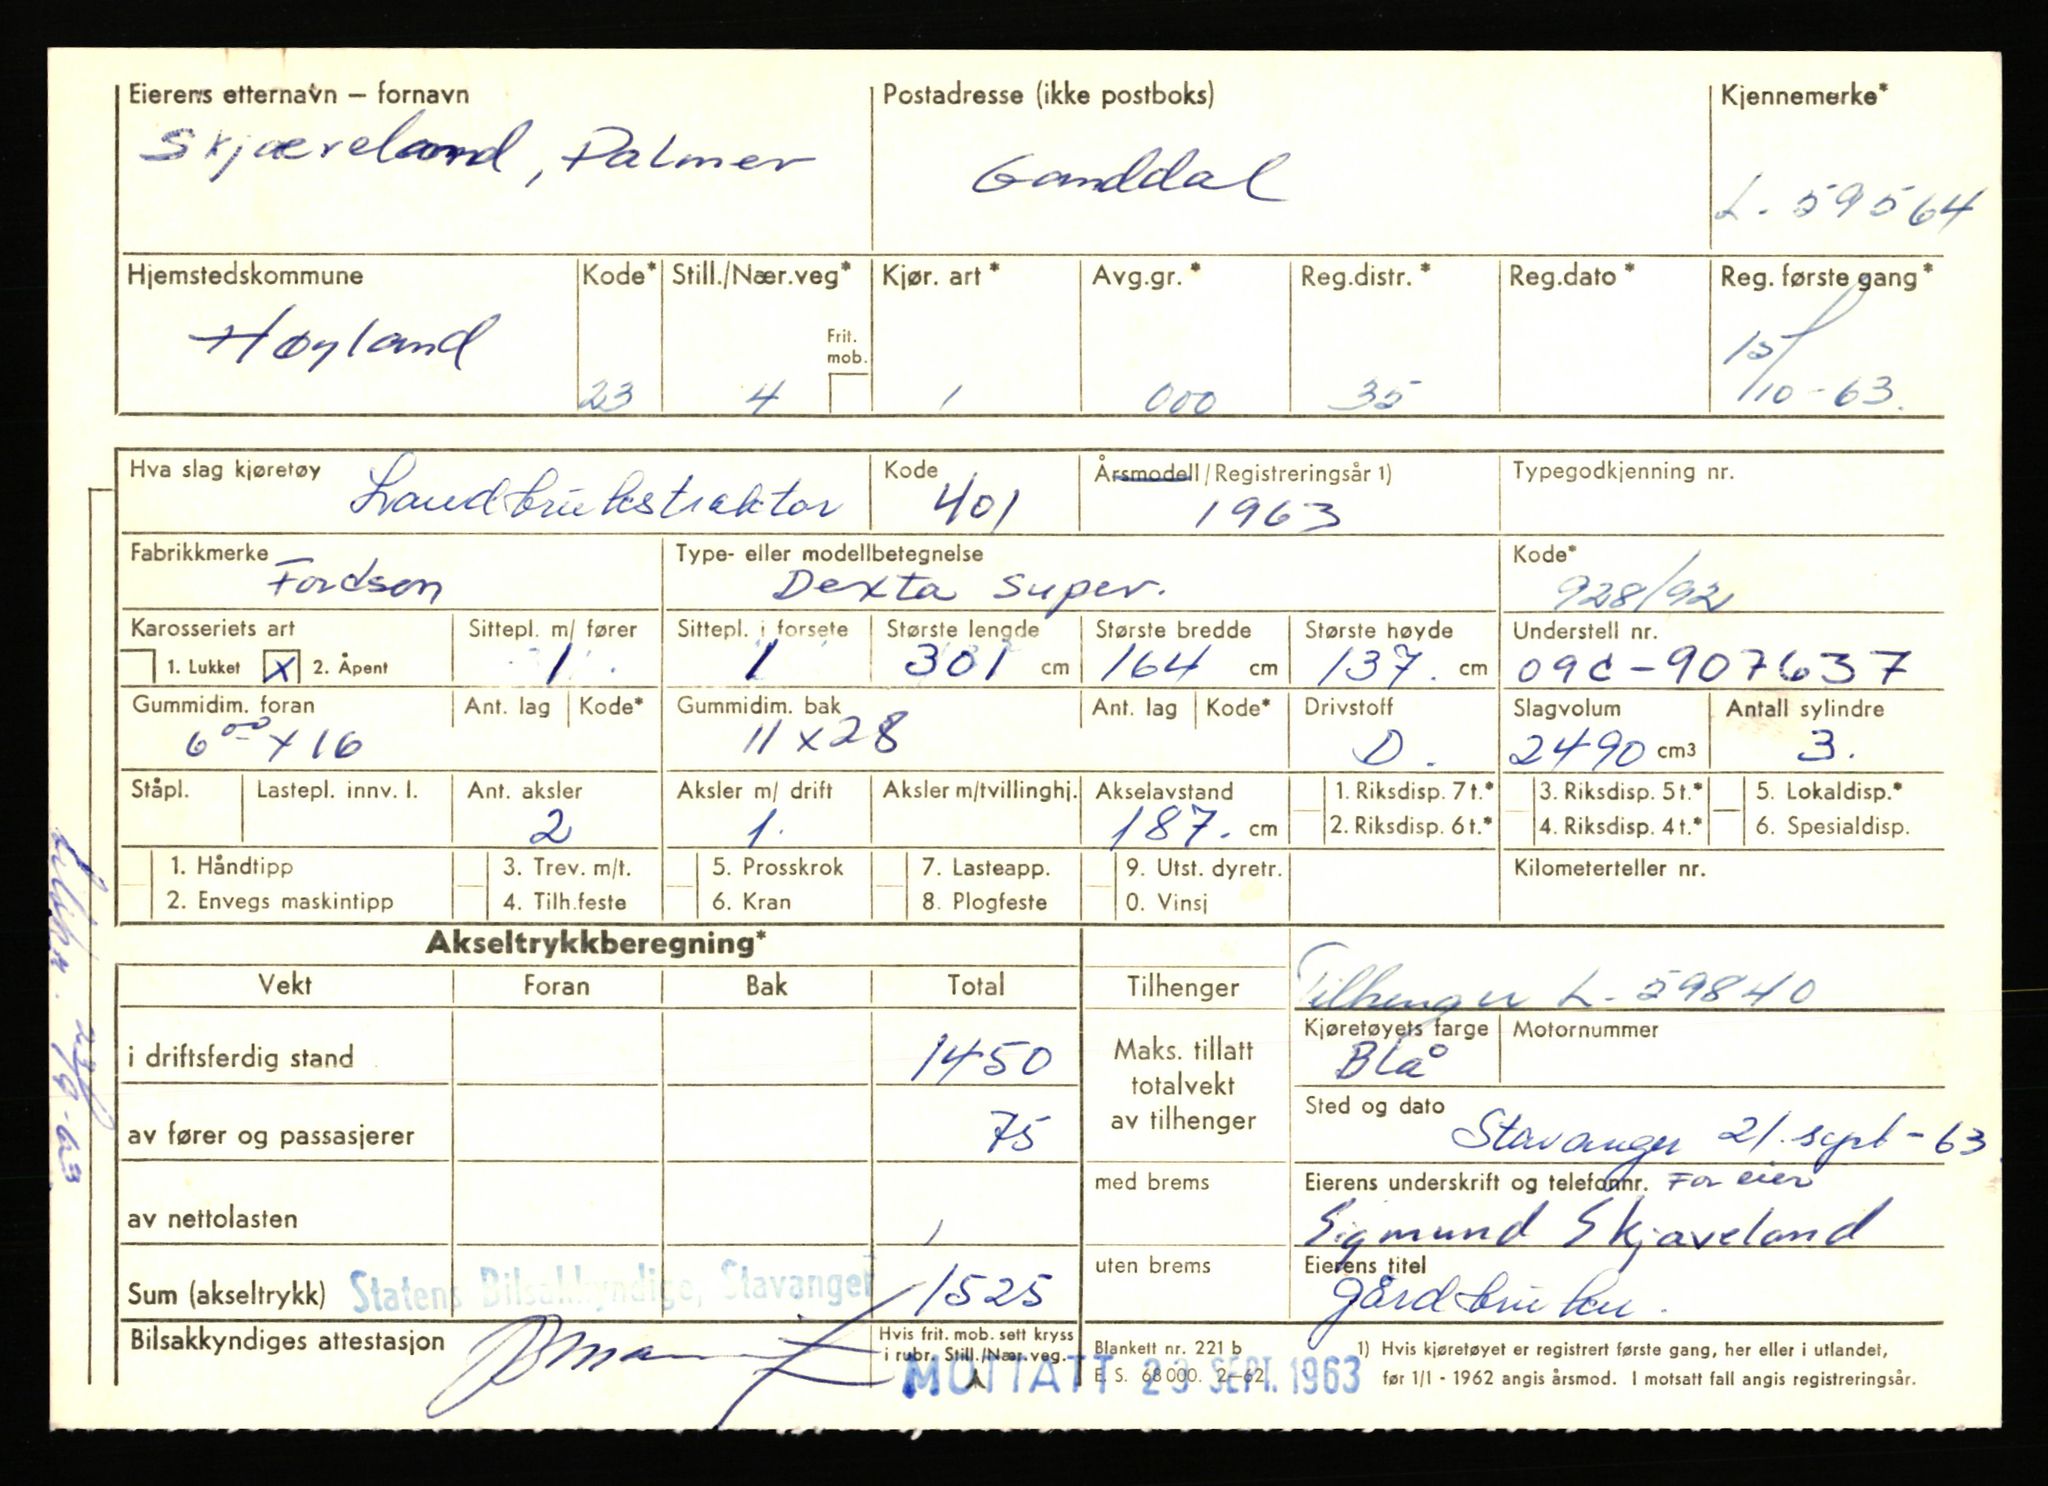 Eierens etternavn — fornavn
Postadresse (ikke postboks)
Kjennemerke*
Skjæveland, Palmer
Ganddal
L. 59564
Hjemstedskommune
Kode*
Still./Nær.veg*
Kjør. art *
Avg.gr. *
Reg.distr. *
Reg.dato *
Reg. første gang*
Høyland
Frit.
mob.
23
4
1
000
35
15/10-63.
Hva slag kjøretøy
Landbrukstraktor
Kode
401
Årsmodell/Registreringsår 1)
1963
Typegodkjenning nr.
Fabrikkmerke
Fordson
Type- eller modellbetegnelse
Dexta Super.
Kode*
928/92
Karosseriets art
Sittepl. m/ fører
Sittepl. i forsete
Største lengde
Største bredde
Største høyde
Understell nr.
1. Lukket
X
2. Åpent
1
1
301 cm
164 cm
137. cm
09C-907637
Gummidim. foran
Ant. lag
Kode*
Gummidim. bak
Ant. lag
Kode*
Drivstoff
Slagvolum
Antall sylindre
6 00 x 16
11 x 28
D.
2490 cm3
3.
Ståpl.
Lastepl. innv. l.
Ant. aksler
Aksler m/ drift
Aksler m/tvillinghj.
Akselavstand
1. Riksdisp. 7 t.*
3. Riksdisp. 5 t.*
5. Lokaldisp.*
2
1.
187. cm
2. Riksdisp. 6 t.*
4. Riksdisp. 4 t.*
6. Spesialdisp.
1. Håndtipp
3. Trev. m/t.
5. Prosskrok
7. Lasteapp.
9. Utst. dyretr.
Kilometerteller nr.
2. Envegs maskintipp
4. Tilh.feste
6. Kran
8. Plogfeste
0. Vinsj
Akseltrykkberegning*
Vekt
Foran
Bak
Total
Tilhenger
Tilhenger L. 59840
Kjøretøyets farge
Motornummer
i driftsferdig stand
1450
Maks. tillatt
totalvekt
av tilhenger
Blå
Sted og dato
av fører og passasjerer
75
Stavanger 21. sept - 63
med brems
Eierens underskrift og telefonnr. For eier
av nettolasten
Sigmund Skjæveland
uten brems
Eierens titel
Sum (akseltrykk)
Statens Bilsakkyndige, Stavanger
1525
gårdbruker.
Bilsakkyndiges attestasjon
Hvis frit. mob. sett kryss
i rubr. Still./Nær.veg.
Blankett nr. 221 b
E. S. 68000. 2—62
1) Hvis kjøretøyet er registrert første gang, her eller i utlandet,
før 1/1 - 1962 angis årsmod. I motsatt fall angis registreringsår.
MOTTATT 23 SEPT. 1963